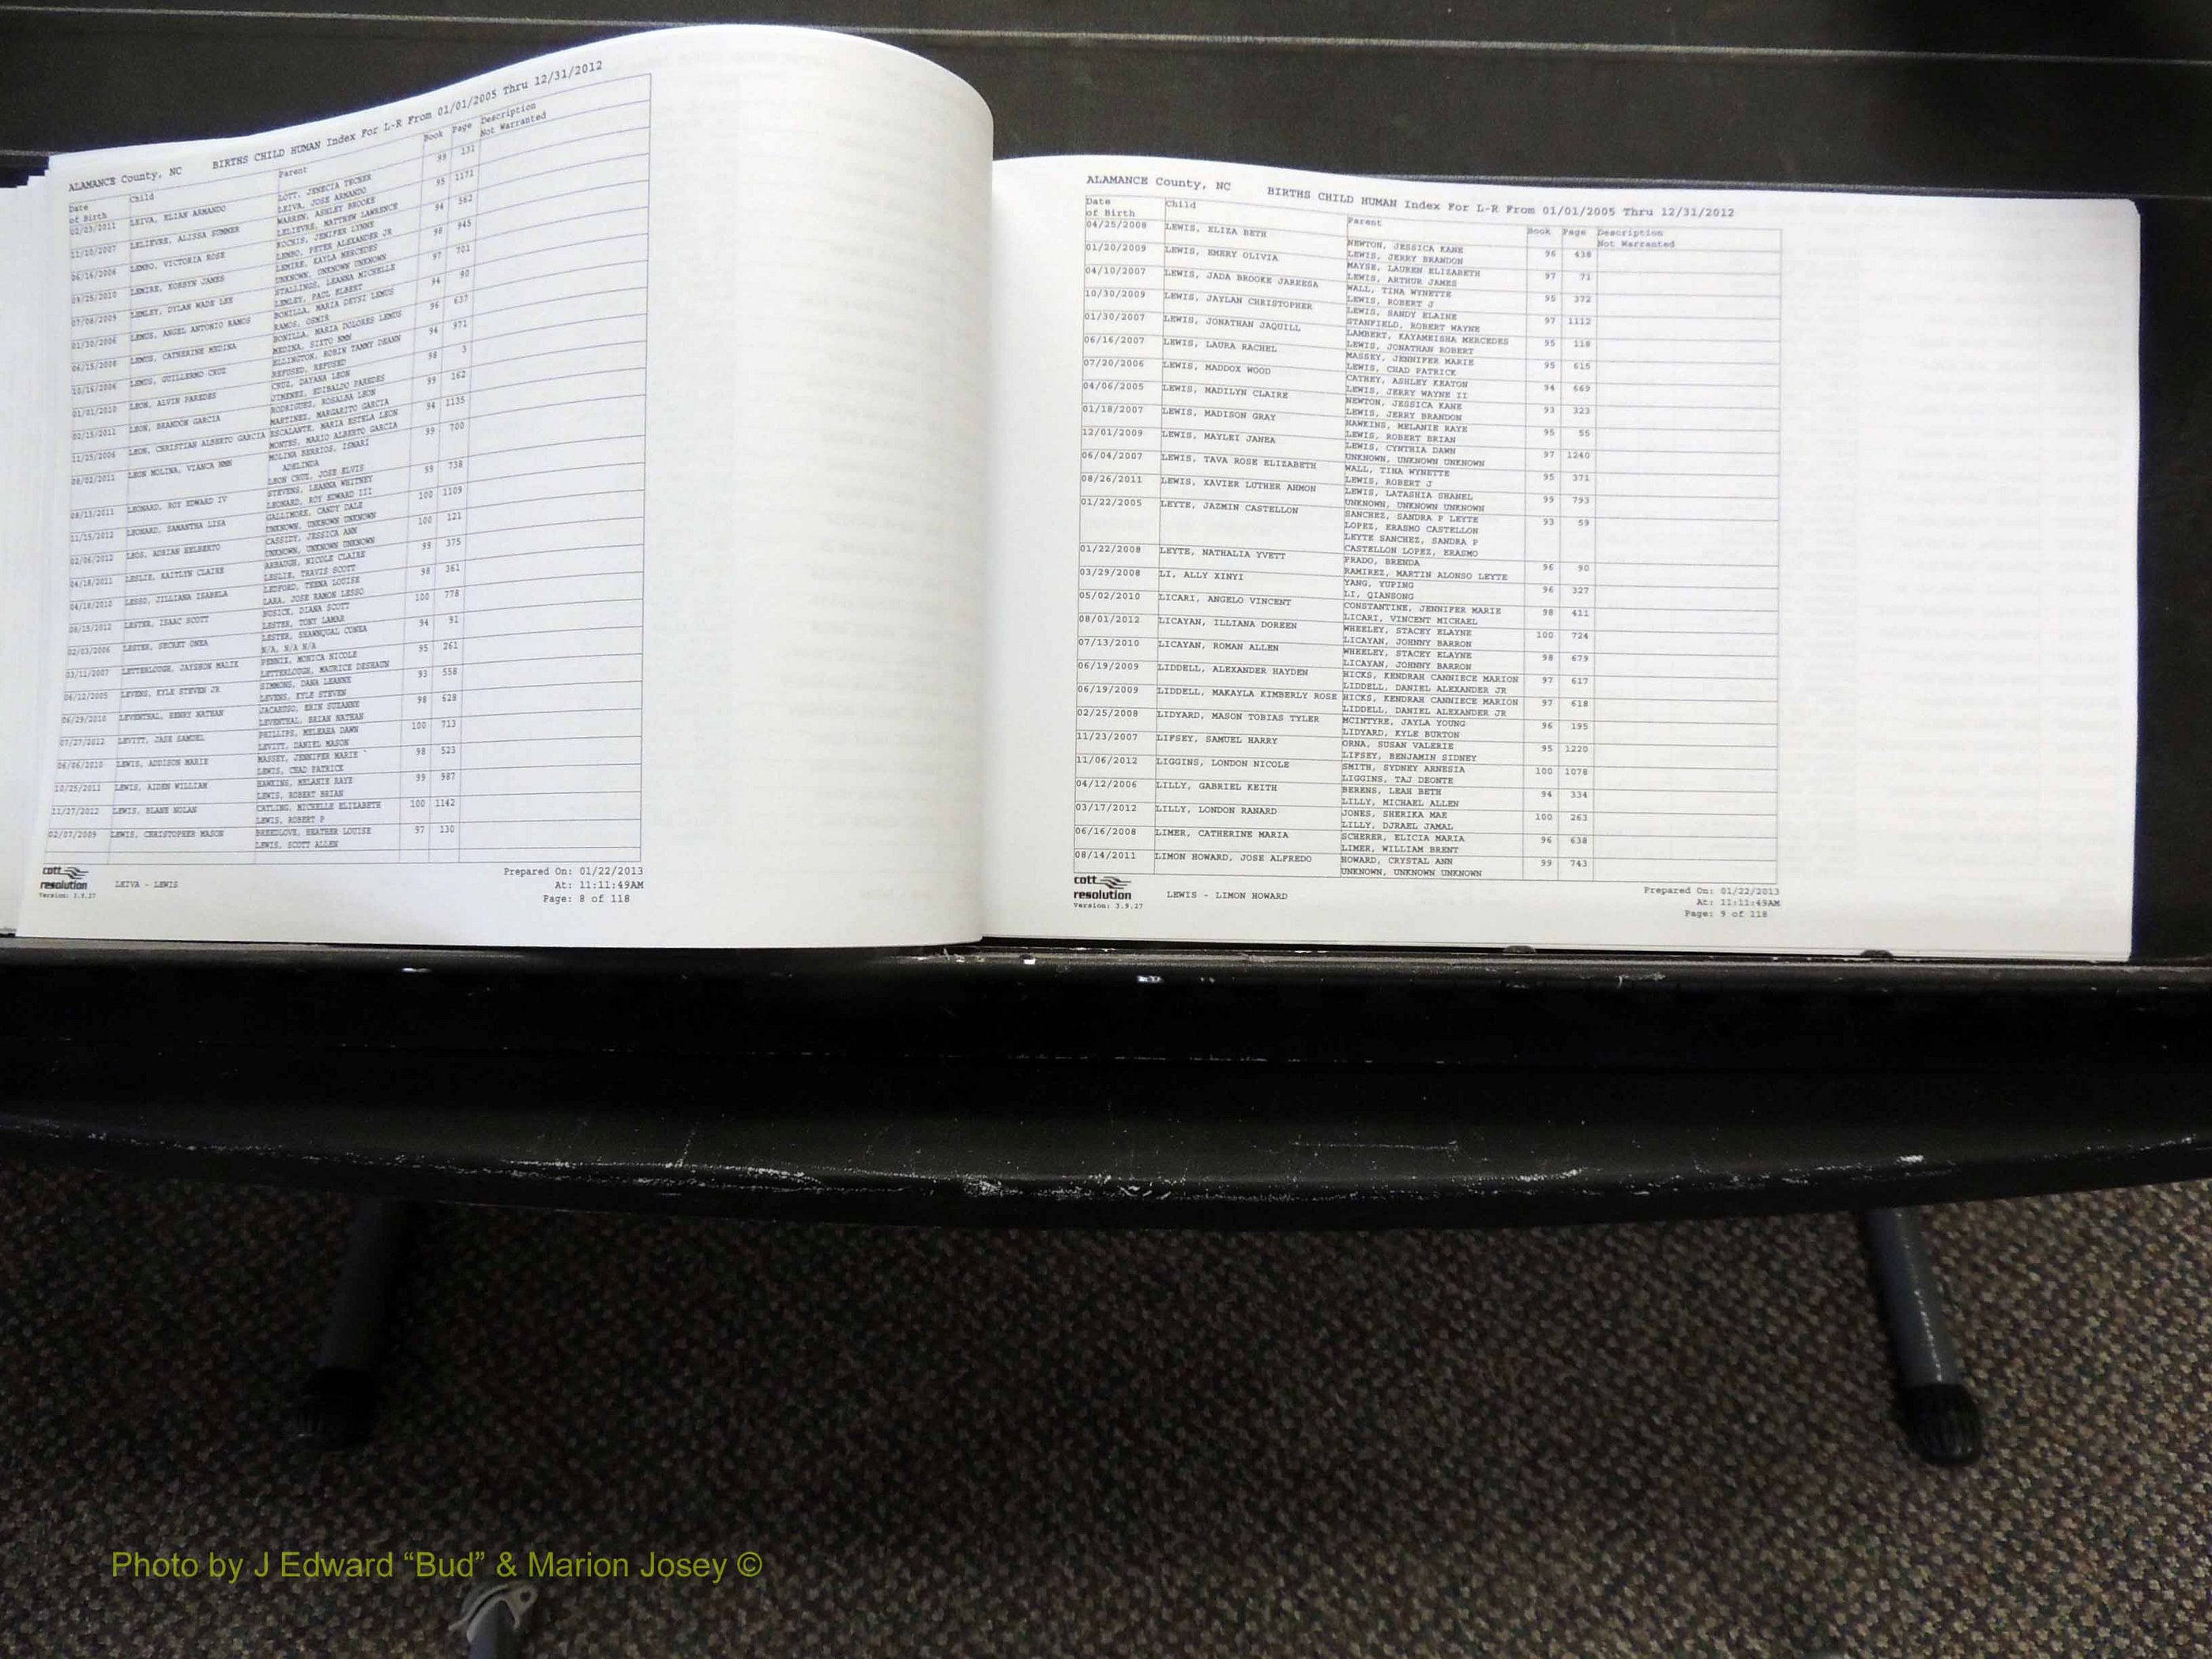 ALAMANCE County, NC BIRTHS CHILD HUMAN Index For L-R From 01/01/2005 Thru 12/31/2012
Date of Birth Child Parent Book Page Description Not Warranted
02/03/2011 LEIVA, ELIAN ARMANDO LOTT, JENECIA TECHER 99 131
LEIVA, JOSE ARMANDO
11/10/2007 LELIEVRE, ALISSA SUMMER WARREN, ASHLEY BROOKE 95 1171
LELIEVRE, MATTHEW LAWRENCE
06/16/2006 LEMBO, VICTORIA ROSE KOCHIS, JENIFER LYNNE 94 562
LEMBO, PETER ALEXANDER JR
09/25/2010 LEMIRE, KORBYN JAMES LEMIRE, KAYLA MERCEDES 98 945
UNKNOWN, UNKNOWN UNKNOWN
07/08/2009 LEMLEY, DYLAN WADE LEE STALLINGS, LEANNA MICHELLE 97 701
LEMLEY, PAUL ELBERT
01/30/2006 LEMUS, ANGEL ANTONIO RAMOS BONILLA, MARIA DEYSI LEMUS 94 90
RAMOS, OSMIR
06/15/2008 LEMUS, CATHERINE MEDINA BONILLA, MARIA DOLORES LEMUS 96 637
MEDINA, SIXTO NMN
10/16/2006 LEMUS, GUILLERMO CRUZ ELLINGTON, ROBIN TAMMY DEANN 94 971
REFUSED, REFUSED
01/01/2010 LEON, ALVIN PAREDES CRUZ, DAYANA LEON 98 3
JIMENEZ, EDIBALDO PAREDES
02/15/2011 LEON, BRANDON GARCIA RODRIGUEZ, ROSALBA LEON 99 162
MARTINEZ, MARGARITO GARCIA
11/25/2006 LEON, CHRISTIAN ALBERTO GARCIA ESCALANTE, MARIA ESTELA LEON 94 1135
MONTES, MARIO ALBERTO GARCIA
08/02/2011 LEON MOLINA, VIANCA NMN MOLINA BERRIOS, ISMARI 99 700
ADELINDA
LEON CRUZ, JOSE ELVIS
08/13/2011 LEONARD, ROY EDWARD IV STEVENS, LEANNA WHITNEY 99 738
LEONARD, ROY EDWARD III
11/15/2012 LEONARD, SAMANTHA LISA GALLIMORE, CANDY DALE 100 1109
UNKNOWN, UNKNOWN UNKNOWN
02/06/2012 LEOS, ADRIAN HELBERTO CASSIDY, JESSICA ANN 100 121
UNKNOWN, UNKNOWN UNKNOWN
04/18/2011 LESLIE, KAITLYN CLAIRE ARBAUGH, NICOLE CLAIRE 99 375
LESLIE, TRAVIS SCOTT
04/18/2010 LESSO, JILLIANA ISABELA LEDFORD, TEENA LOUISE 98 361
LARA, JOSE RAMON LESSO
08/15/2012 LESTER, ISAAC SCOTT BUSICK, DIANA SCOTT 100 778
LESTER, TONY LAMAR
02/03/2006 LESTER, SECRET ONEA LESTER, SHAWNQUAL CONEA 94 91
N/A, N/A N/A
03/11/2007 LETTERLOUGH, JAYSHON MALIK PENNIX, MONICA NICOLE 95 261
LETTERLOUGH, MAURICE DESHAUN
06/12/2005 LEVENS, KYLE STEVEN JR SIMMONS, DANA LEANNE 93 558
LEVENS, KYLE STEVEN
06/29/2010 LEVENTHAL, HENRY NATHAN JACARUSO, ERIN SUZANNE 98 628
LEVENTHAL, BRIAN NATHAN
07/27/2012 LEVITT, JASE SAMUEL PHILLIPS, MELEAHA DAWN 100 713
LEVITT, DANIEL MASON
06/06/2010 LEWIS, ADDISON MARIE MASSEY, JENNIFER MARIE 98 523
LEWIS, CHAD PATRICK
10/25/2011 LEWIS, AIDEN WILLIAM HAWKINS, MELANIE RAYE 99 987
LEWIS, ROBERT BRIAN
11/27/2012 LEWIS, BLANE NOLAN CATLING, MICHELLE ELIZABETH 100 1142
LEWIS, ROBERT P
02/07/2009 LEWIS, CHRISTOPHER MASON BREEDLOVE, HEATHER LOUISE 97 130
LEWIS, SCOTT ALLEN
cott resolution
Version: 3.9.27
LEIVA - LEWIS
Prepared On: 01/22/2013
At: 11:11:49AM
Page: 8 of 118
ALAMANCE County, NC BIRTHS CHILD HUMAN Index For L-R From 01/01/2005 Thru 12/31/2012
Date of Birth Child Parent Book Page Description Not Warranted
04/25/2008 LEWIS, ELIZA BETH NEWTON, JESSICA KANE 96 438
LEWIS, JERRY BRANDON
01/20/2009 LEWIS, EMERY OLIVIA MAYSE, LAUREN ELIZABETH 97 71
LEWIS, ARTHUR JAMES
04/10/2007 LEWIS, JADA BROOKE JAREESA WALL, TINA WYNETTE 95 372
LEWIS, ROBERT J
10/30/2009 LEWIS, JAYLAN CHRISTOPHER LEWIS, SANDY ELAINE 97 1112
STANFIELD, ROBERT WAYNE
01/30/2007 LEWIS, JONATHAN JAQUILL LAMBERT, KAYAMEISHA MERCEDES 95 118
LEWIS, JONATHAN ROBERT
06/16/2007 LEWIS, LAURA RACHEL MASSEY, JENNIFER MARIE 95 615
LEWIS, CHAD PATRICK
07/20/2006 LEWIS, MADDOX WOOD CATHEY, ASHLEY KEATON 94 669
LEWIS, JERRY WAYNE II
04/06/2005 LEWIS, MADILYN CLAIRE NEWTON, JESSICA KANE 93 323
LEWIS, JERRY BRANDON
01/18/2007 LEWIS, MADISON GRAY HAWKINS, MELANIE RAYE 95 55
LEWIS, ROBERT BRIAN
12/01/2009 LEWIS, MAYLEI JANEA LEWIS, CYNTHIA DAWN 97 1240
UNKNOWN, UNKNOWN UNKNOWN
06/04/2007 LEWIS, TAVA ROSE ELIZABETH WALL, TINA WYNETTE 95 371
LEWIS, ROBERT J
08/26/2011 LEWIS, XAVIER LUTHER AHMON LEWIS, LATASHIA SHANEL 99 793
UNKNOWN, UNKNOWN UNKNOWN
01/22/2005 LEYTE, JAZMIN CASTELLON SANCHEZ, SANDRA P LEYTE 93 59
LOPEZ, ERASMO CASTELLON
LEYTE SANCHEZ, SANDRA P
CASTELLON LOPEZ, ERASMO
01/22/2008 LEYTE, NATHALIA YVETT PRADO, BRENDA 96 90
RAMIREZ, MARTIN ALONSO LEYTE
03/29/2008 LI, ALLY XINYI YANG, YUPING 96 327
LI, QIANSONG
05/02/2010 LICARI, ANGELO VINCENT CONSTANTINE, JENNIFER MARIE 98 411
LICARI, VINCENT MICHAEL
08/01/2012 LICAYAN, ILLIANA DOREEN WHEELEY, STACEY ELAYNE 100 724
LICAYAN, JOHNNY BARRON
07/13/2010 LICAYAN, ROMAN ALLEN WHEELEY, STACEY ELAYNE 98 679
LICAYAN, JOHNNY BARRON
06/19/2009 LIDDELL, ALEXANDER HAYDEN HICKS, KENDRAH CANNIECE MARION 97 617
LIDDELL, DANIEL ALEXANDER JR
06/19/2009 LIDDELL, MAKAYLA KIMBERLY ROSE HICKS, KENDRAH CANNIECE MARION 97 618
LIDDELL, DANIEL ALEXANDER JR
02/25/2008 LIDYARD, MASON TOBIAS TYLER MCINTYRE, JAYLA YOUNG 96 195
LIDYARD, KYLE BURTON
11/23/2007 LIFSEY, SAMUEL HARRY ORNA, SUSAN VALERIE 95 1220
LIFSEY, BENJAMIN SIDNEY
11/06/2012 LIGGINS, LONDON NICOLE SMITH, SYDNEY ARNESIA 100 1078
LIGGINS, TAJ DEONTE
04/12/2006 LILLY, GABRIEL KEITH BERENS, LEAH BETH 94 334
LILLY, MICHAEL ALLEN
03/17/2012 LILLY, LONDON RANARD JONES, SHERIKA MAE 100 263
LILLY, DJRAEL JAMAL
06/16/2008 LIMER, CATHERINE MARIA SCHERER, ELICIA MARIA 96 638
LIMER, WILLIAM BRENT
08/14/2011 LIMON HOWARD, JOSE ALFREDO HOWARD, CRYSTAL ANN 99 743
UNKNOWN, UNKNOWN UNKNOWN
cott resolution
Version: 3.9.27
LEWIS - LIMON HOWARD
Prepared On: 01/22/2013
At: 11:11:49AM
Page: 9 of 118
Photo by J Edward “Bud” & Marion Josey ©